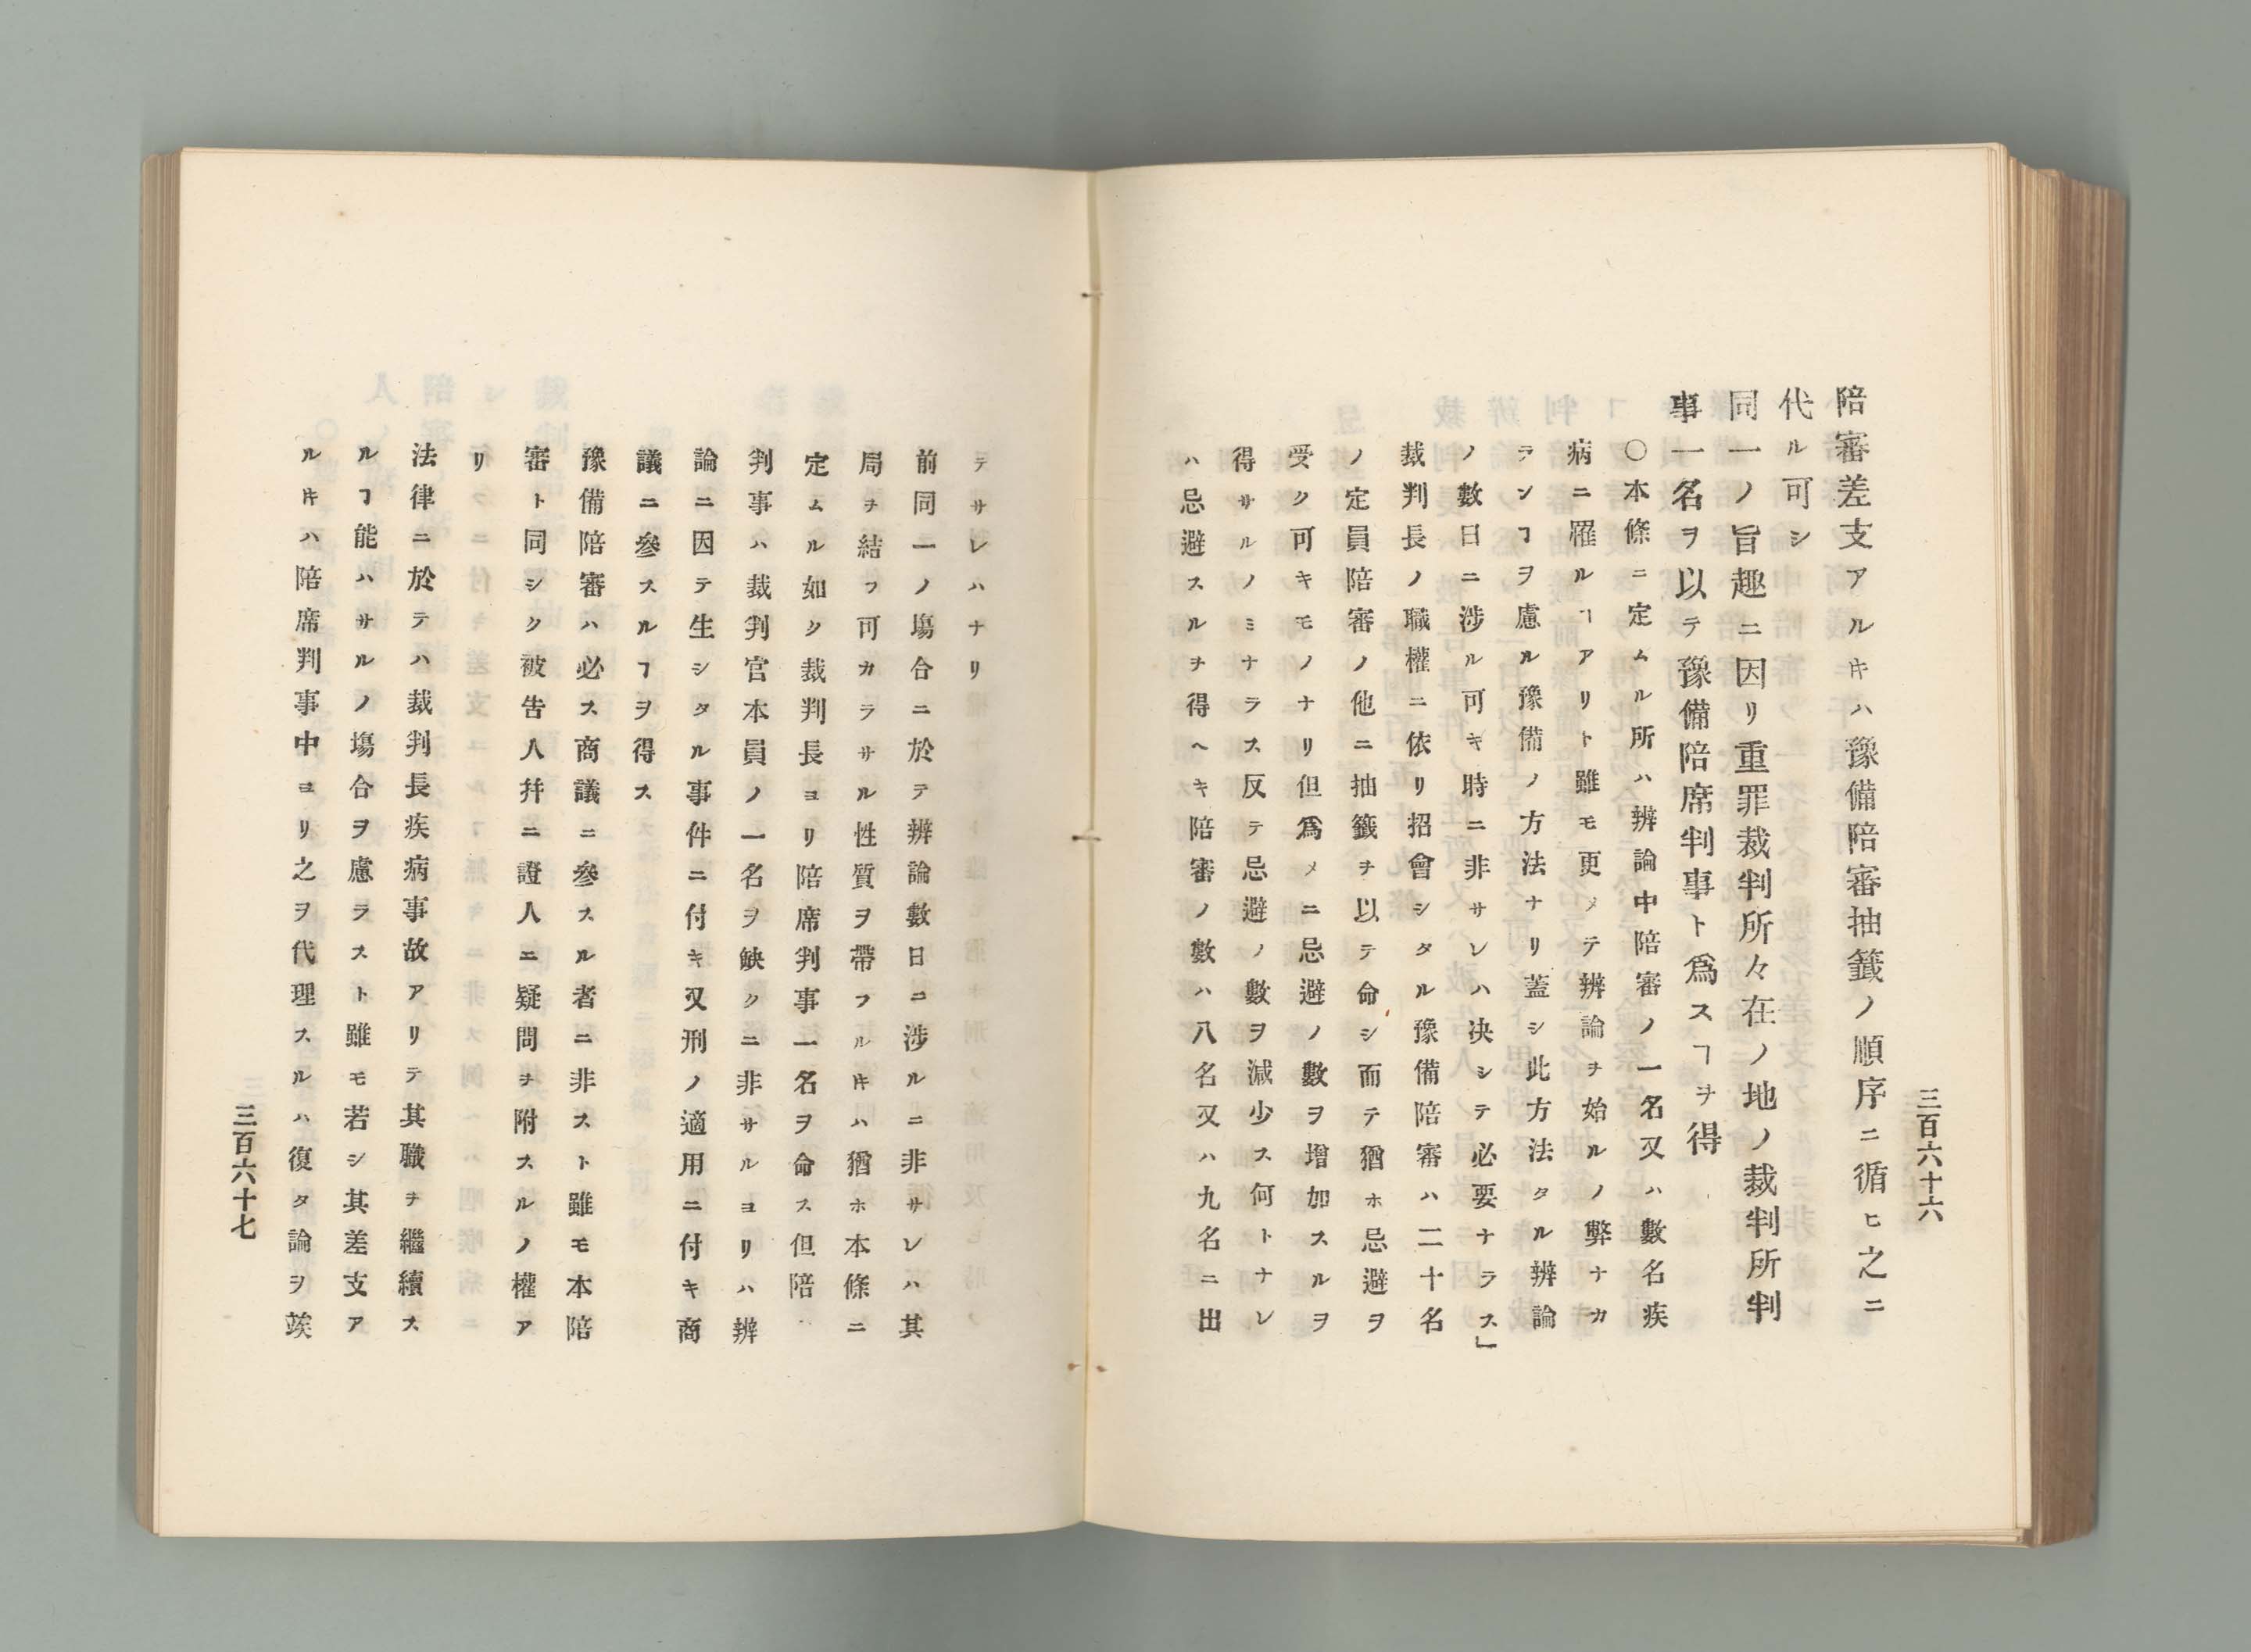 三百六十六
陪審差支アルキハ豫備陪審抽籤ノ順序ニ循ヒ之ニ
代ル可シ
同一ノ旨趣ニ因リ重罪裁判所々在ノ地ノ裁判所判
事一名ヲ以テ豫備陪席判事ト爲スヿヲ得
〇本條ニ定ムル所ハ辨論中陪審ノ一名又ハ數名疾
病ニ罹ルヿアリト雖モ更メテ辨論ヲ始ルノ弊ナカ
ランヿヲ慮ル豫備ノ方法ナリ蓋シ此方法タル辨論
ノ數日ニ涉ル可キ時ニ非サレハ决シテ必要ナラス」
裁判長ノ職權ニ依リ招會シタル豫備陪審ハ二十名
ノ定員陪審ノ他ニ抽籤ヲ以テ命シ而テ猶ホ忌避ヲ
受ク可キモノナリ但爲メニ忌避ノ數ヲ增加スルヲ
得サルノミナラス反テ忌避ノ數ヲ減少ス何トナレ
ハ忌避スルヲ得ヘキ陪審ノ數ハ八名又ハ九名ニ出
テサレハナリ
前同一ノ塲合ニ於テ辨論數日ニ涉ルニ非サレハ其
局ヲ結フ可カラサル性質ヲ帶フルキハ猶ホ本條ニ
定ムル如ク裁判長ヨリ陪席判事一名ヲ命ス但陪
判事ハ裁判官本員ノ一名ヲ缺クニ非サルヨリハ辨
論ニ因テ生シタル事件ニ付キ又刑ノ適用ニ付キ商
議ニ參スルヿヲ得ス
豫備陪審ハ必ス商議ニ參スル者ニ非スト雖モ本陪
審ト同シク被告人幷ニ證人ニ疑問ヲ附スルノ權ア
リ
法律ニ於テハ裁判長疾病事故アリテ其職ヲ繼續ス
ルヿ能ハサルノ塲合ヲ慮ラスト雖モ若シ其差支ア
ルキハ陪席判事中ヨリ之ヲ代理スルハ復タ論ヲ竢
三百六十七